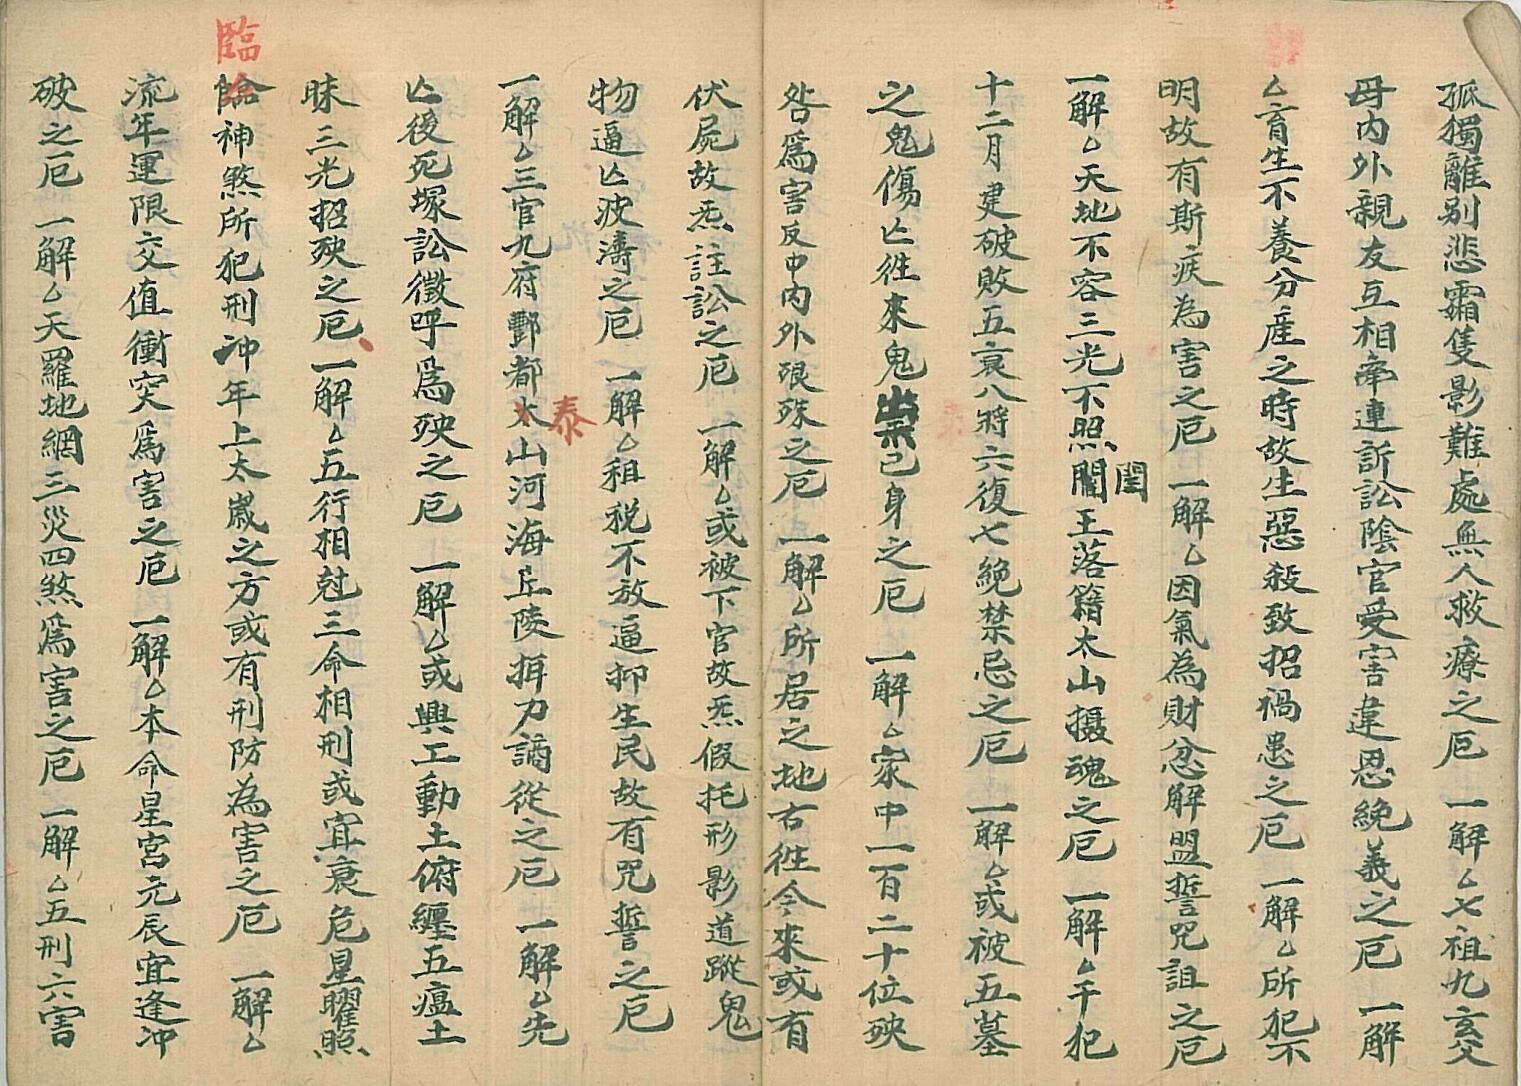 孤獨離別悲霜隻影難處無人救療之厄 一解厶七祖九玄父
母內外親友互相牽連訢訟陰官受害違恩絶義之厄 一解
厶育生不養分産之時故生惡殺致招禍患之厄 一解厶所犯不
明故有斯疾為害之厄 一解厶因氣為財忿解盟誓咒詛之厄
一解厶天地不容三光不照閶王落籍太山攝魂之厄 一解厶干犯
閨
十二月建破敗五衰八將六復七絶禁忌之厄 一解厶或被五墓
之鬼傷亾徃來鬼祟己身之厄 一解厶家中一百二十位殃
咎爲害反中內外殃之厄 一解厶所居之地古徃今來或有
伏屍故炁註訟之厄 一解厶或被下官故炁假托形影道蹤鬼
物逼亾波濤之厄 一解厶租税不放逼抑生民故有咒誓之厄
一解厶三官九府酆都太山河海丘陵揖力謫從之厄 一解厶先
泰
亾後死塚訟徵呼爲殃之厄 一解厶或興工動土俯纏五瘟土
昧三光招殃之厄 一解厶五行相尅三命相刑或宜衰危星曜照
臨神煞所犯刑冲年上太歲之方或有刑防為害之厄 一解厶
臨
流年運限交值衝突爲害之厄 一解厶本命星宮元辰宜逢冲
破之厄 一解厶天羅地網三災四煞爲害之厄 一解厶五刑六害